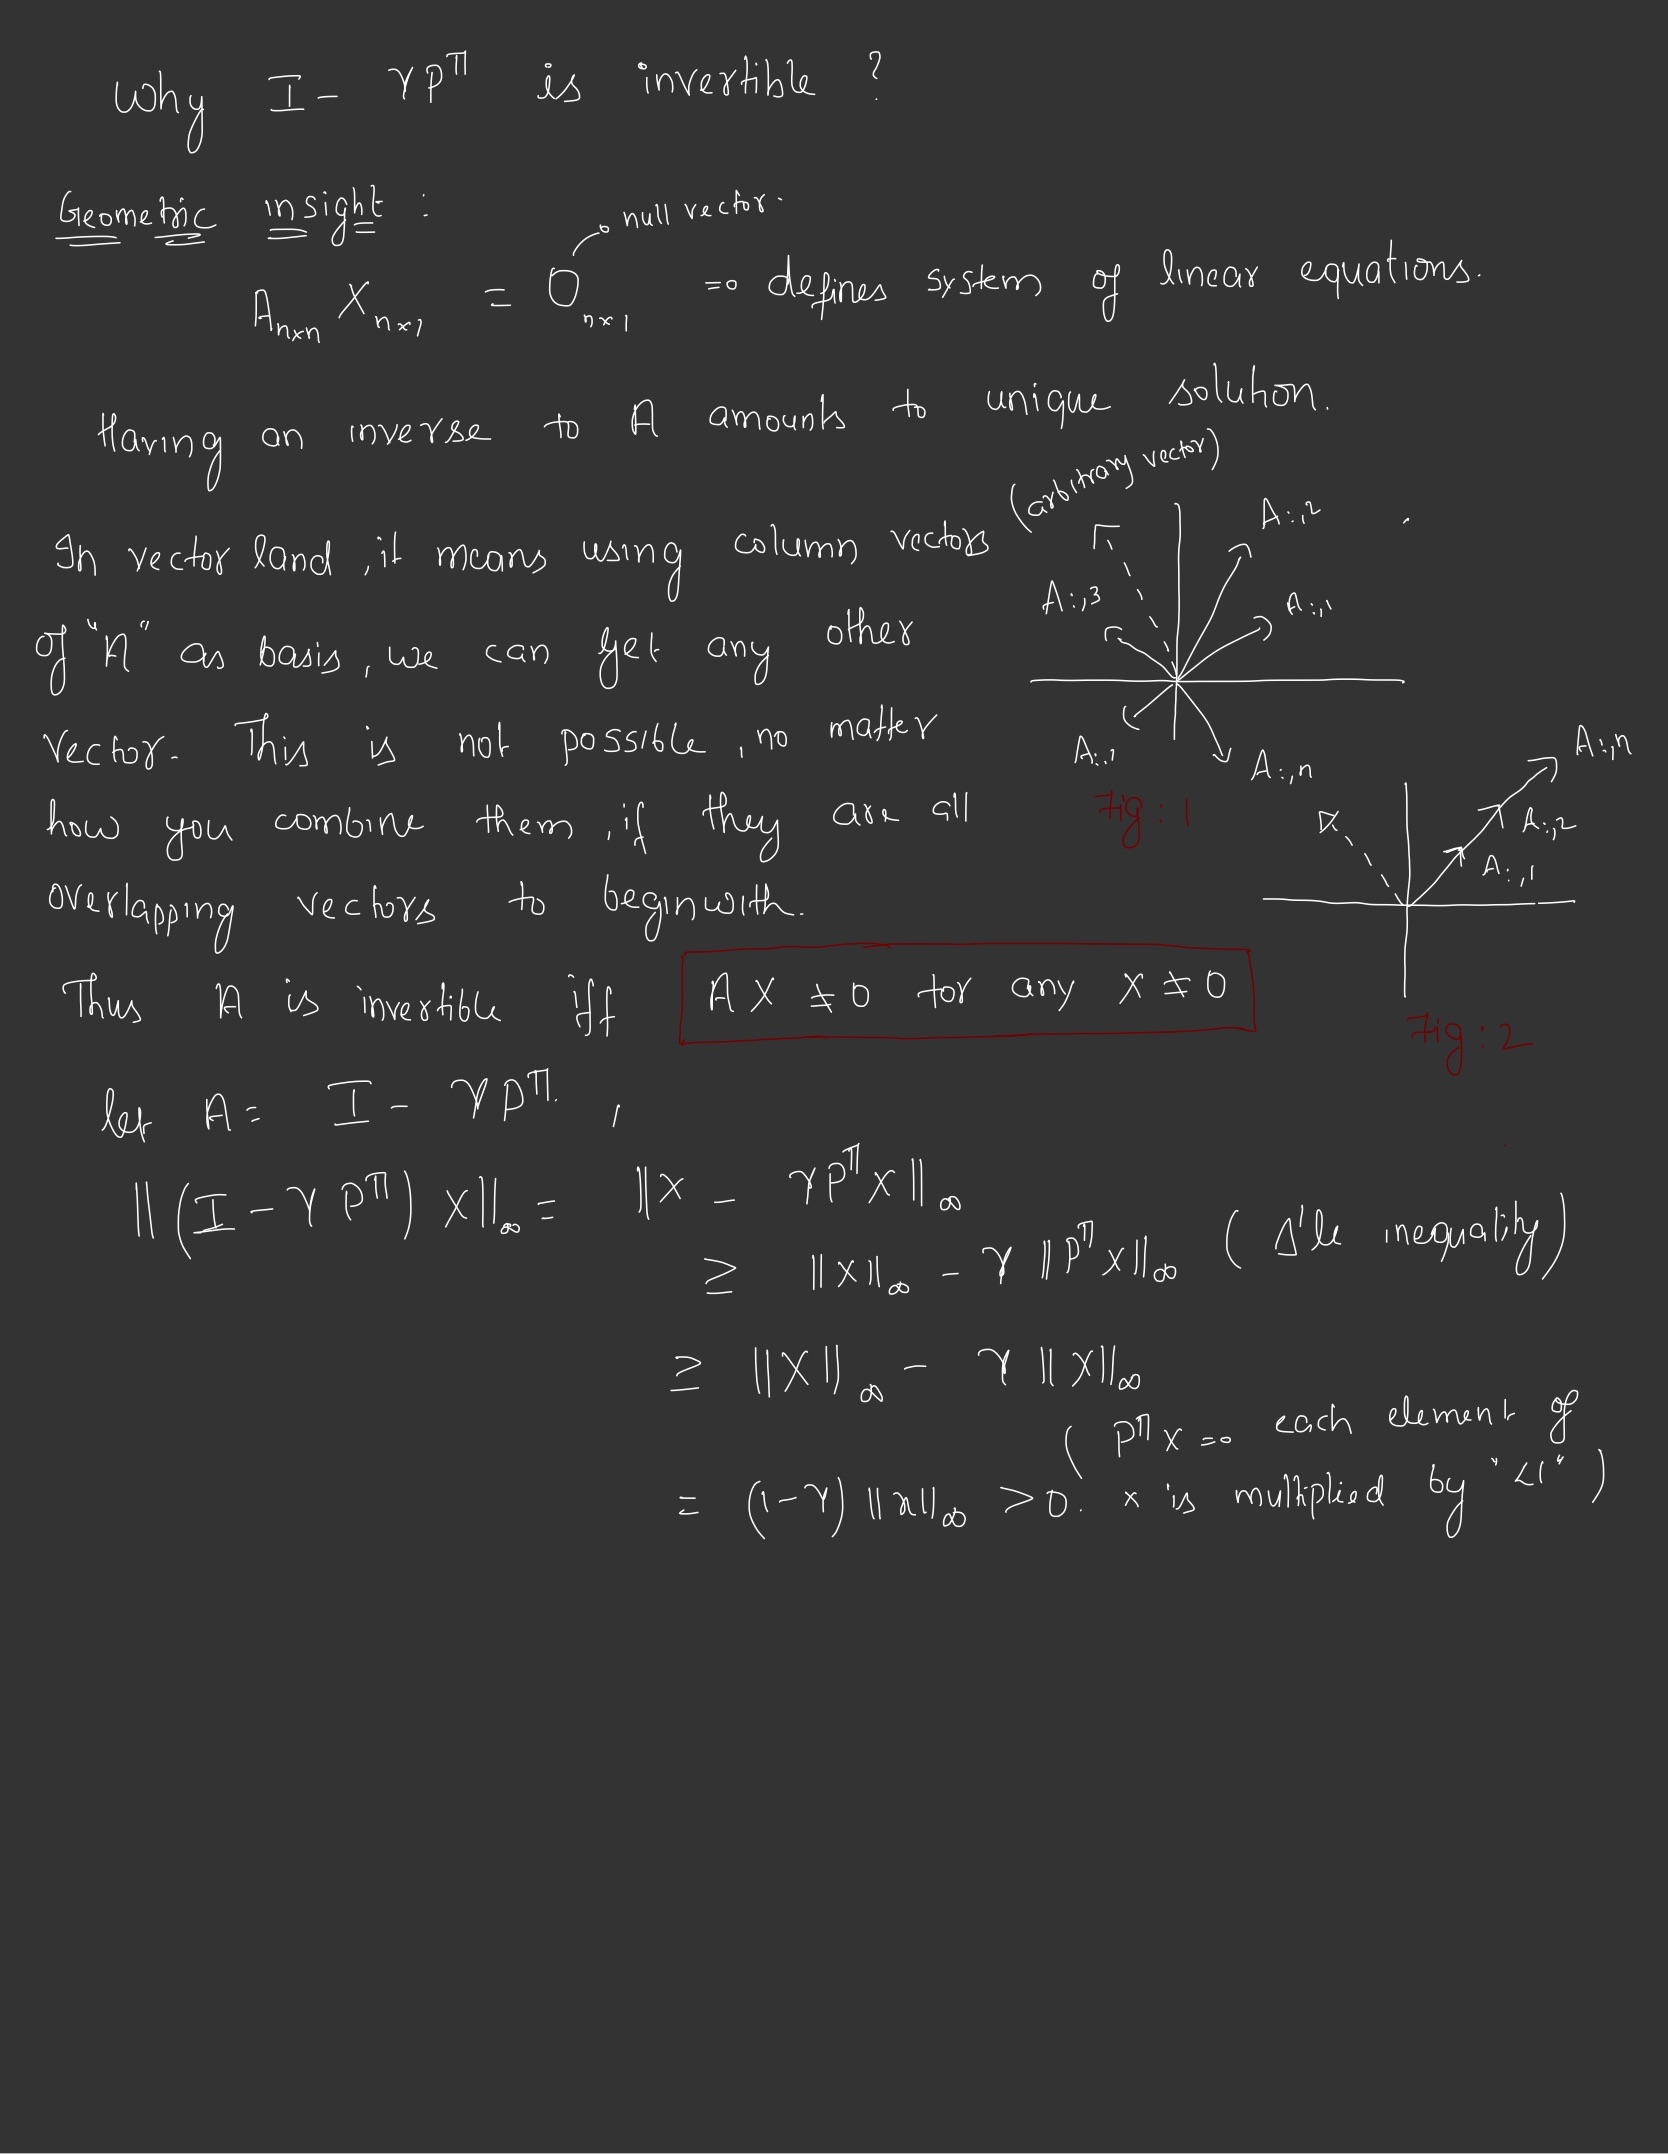 Why I - γP^π is invertible ?
Geometric insight :
null vector.
A_{n×n} X_{n×1} = O_{n×1} ⇒ defines system of linear equations.
Having an inverse to A amounts to unique solution.
(arbitrary vector)
In vector land, it means using column vectors
of "A" as basis, we can get any other
vector. This is not possible, no matter
how you combine them, if they are all
overlapping vectors to begin with.
A:,2
A:,3
A:,1
A:,1
A:,n
Fig : 1
A:,n
A:,2
A:,1
Fig : 2
Thus A is invertible iff AX ≠ 0 for any X ≠ 0
let A = I - γP^π ,
||(I - γP^π) X||_∞ = ||X - γP^π X||_∞
≥ ||X||_∞ - γ ||P^π X||_∞ (Δ'le inequality)
≥ ||X||_∞ - γ ||X||_∞
(P^π X ⇒ each element of
= (1-γ) ||x||_∞ > 0. x is multiplied by "<1")